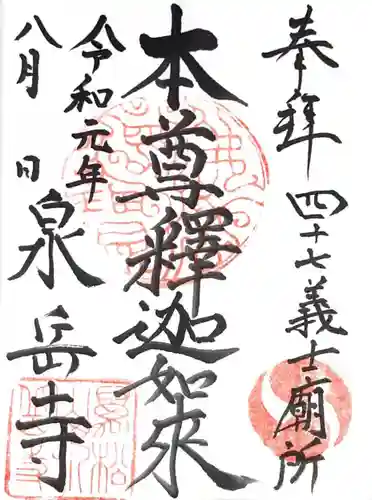 奉拝 四十七義士廟所
本尊釋迦如來
令和元年
八月 日
泉岳寺